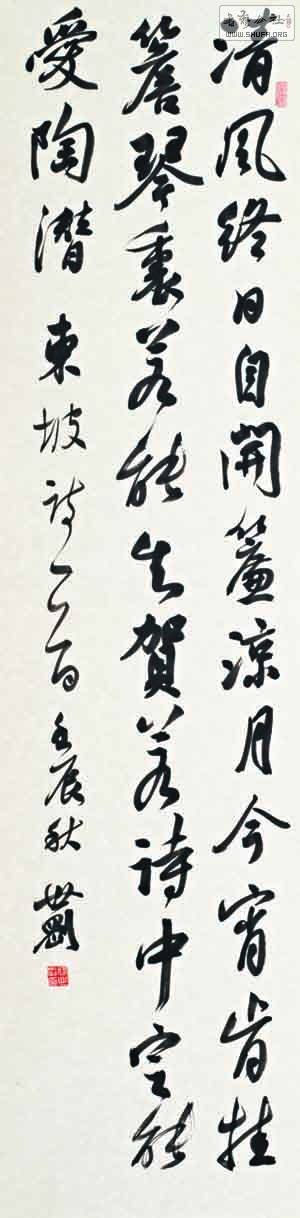 清風終日自開簾涼月今宵肯挂
簷琴裏若能知賀若詩中定能
愛陶潛 東坡詩一首 壬辰秋 世剛
WWW.SHUFA.ORG